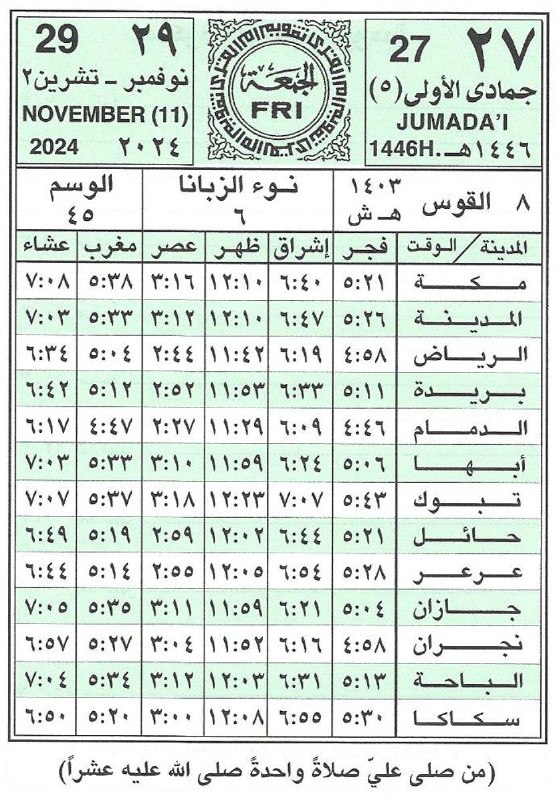 ٢٧ 27
جمادى الأولى (٥)
JUMADA'I
١٤٤٦هـ. 1446H.
الجمعة
FRI
٢٩ 29
نوفمبر - تشرين٢
NOVEMBER (11)
٢٠٢٤ 2024
٨ القوس ١٤٠٣ هـ ش
نوء الزبانا ٦
الوسم ٤٥
المدينة / الوقت فجر إشراق ظهر عصر مغرب عشاء
مكة ٥:٢١ ٦:٤٠ ١٢:١٠ ٣:١٦ ٥:٣٨ ٧:٠٨
المدينة ٥:٢٦ ٦:٤٧ ١٢:١٠ ٣:١٢ ٥:٣٣ ٧:٠٣
الرياض ٤:٥٨ ٦:١٩ ١١:٤٢ ٢:٤٤ ٥:٠٤ ٦:٣٤
بريدة ٥:١١ ٦:٣٣ ١١:٥٣ ٢:٥٢ ٥:١٢ ٦:٤٢
الدمام ٤:٤٦ ٦:٠٩ ١١:٢٩ ٢:٢٧ ٤:٤٧ ٦:١٧
أبها ٥:٠٦ ٦:٢٤ ١١:٥٩ ٣:١٠ ٥:٣٣ ٧:٠٣
تبوك ٥:٤٣ ٧:٠٧ ١٢:٢٣ ٣:١٨ ٥:٣٧ ٧:٠٧
حائل ٥:٢١ ٦:٤٤ ١٢:٠٢ ٢:٥٩ ٥:١٩ ٦:٤٩
عرعر ٥:٢٨ ٦:٥٤ ١٢:٠٥ ٢:٥٥ ٥:١٤ ٦:٤٤
جازان ٥:٠٤ ٦:٢١ ١١:٥٩ ٣:١١ ٥:٣٥ ٧:٠٥
نجران ٤:٥٨ ٦:١٦ ١١:٥٢ ٣:٠٤ ٥:٢٧ ٦:٥٧
الباحة ٥:١٣ ٦:٣١ ١٢:٠٣ ٣:١٢ ٥:٣٤ ٧:٠٤
سكاكا ٥:٣٠ ٦:٥٥ ١٢:٠٨ ٣:٠٠ ٥:٢٠ ٦:٥٠
(من صلى عليّ صلاةً واحدةً صلى الله عليه عشراً)